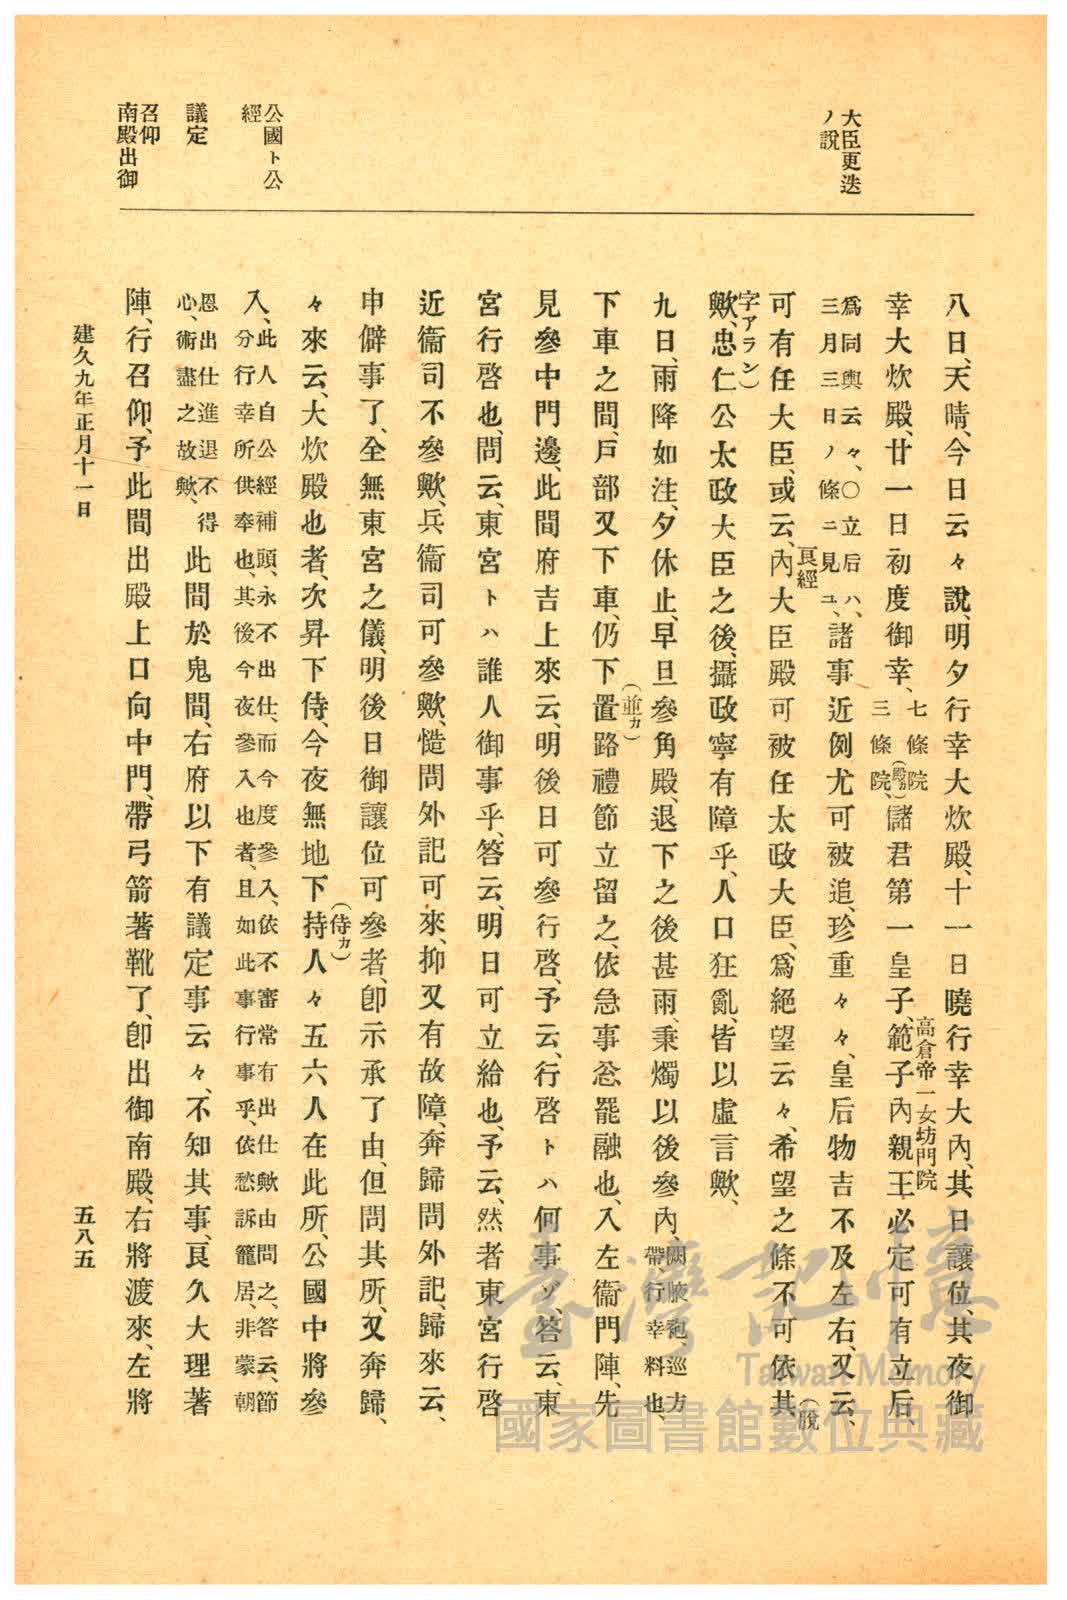 大臣更迭
ノ說
公國ト公
經
議定
召仰
南殿出御
八日、天晴、今日云々說、明夕行幸大炊殿、十一日曉行幸大內、其日讓位、其夜御
幸大炊殿、廿一日初度御幸、七條院三條院、(殿カ)儲君第一皇子、範子內親王必定可有立后、
高倉帝一女坊門院
爲同輿云々、〇立后ハ、
三月三日ノ條ニ見ユ、諸事近例尤可被追、珍重々々、皇后物吉不及左右、又云、
可有任大臣、或云、內大臣殿可被任太政大臣、爲絕望云々、希望之條不可依其
良經
(脫
字アラン)
歟、忠仁公太政大臣之後、攝政寧有障乎、人口狂亂、皆以虛言歟、
九日、雨降如注、夕休止、早旦參角殿、退下之後甚雨、秉燭以後參內、闕腋袍巡方
帶行幸料也、
下車之間、戶部又下車、仍下置路禮節立留之、依急事忩罷融也、入左衞門陣、先
(並カ)
見參中門邊、此間府吉上來云、明後日可參行啓、予云、行啓トハ何事ゾ、答云、東
宮行啓也、問云、東宮トハ誰人御事乎、答云、明日可立給也、予云、然者東宮行啓
近衞司不參歟、兵衞司可參歟、慥問外記可來、抑又有故障、奔歸問外記、歸來云、
申僻事了、全無東宮之儀、明後日御讓位可參者、卽示承了由、但問其所、又奔歸、
々來云、大炊殿也者、次昇下侍、今夜無地下持人々五六人在此所、公國中將參
(侍カ)
入、此人自公經補頭、永不出仕、而今度參入、依不審常有出仕歟由問之、答云、節
分行幸所供奉也、其後今夜參入也者、且如此事行事乎、依愁訴籠居、非蒙朝
恩出仕進退不得
心、術盡之故歟、此間於鬼間、右府以下有議定事云々、不知其事、良久大理著
陣、行召仰、予此間出殿上口向中門、帶弓箭著靴了、卽出御南殿、右將渡來、左將
建久九年正月十一日
五八五
臺灣記憶
Taiwan Memory
國家圖書館數位典藏